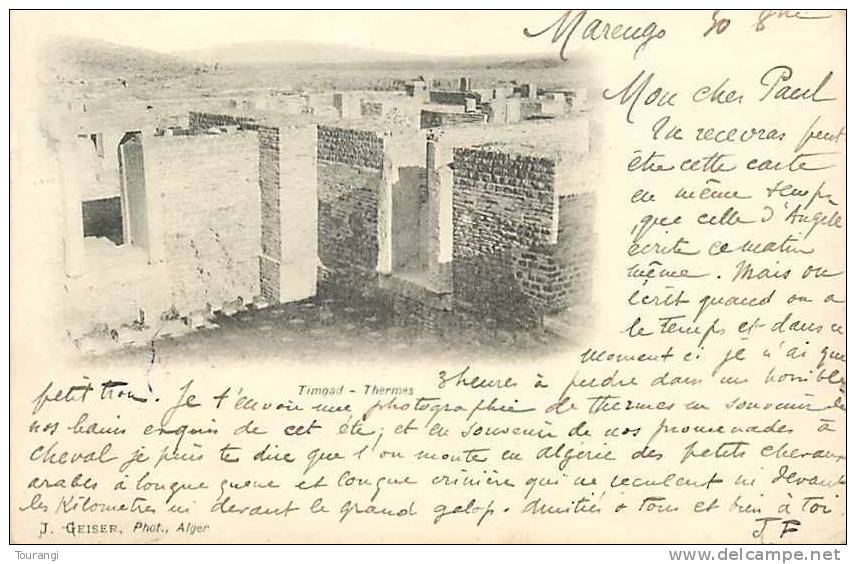 Marengo 30 8bre
Mon cher Paul
Tu recevras peut
être cette carte
en même temps
que celle d'Angèle
écrite ce matin
même. Mais on
écrit quand on a
le temps et dans ce
moment ci je n'ai que
Timgad - Thermes
3 heures à perdre dans un horrible
petit trou. Je t'envoie une photographie de thermes en souvenir de
nos bains exquis de cet été; et en souvenir de nos promenades à
cheval je puis te dire que l'on monte en Algérie des petits chevaux
arabes à longue queue et longue crinière qui ne reculent ni devant
les Kilomètres ni devant le grand galop. Amitiés à tous et bien à toi
J. F
J. GEISER, Phot., Alger
Tourangi
www.delcampe.net